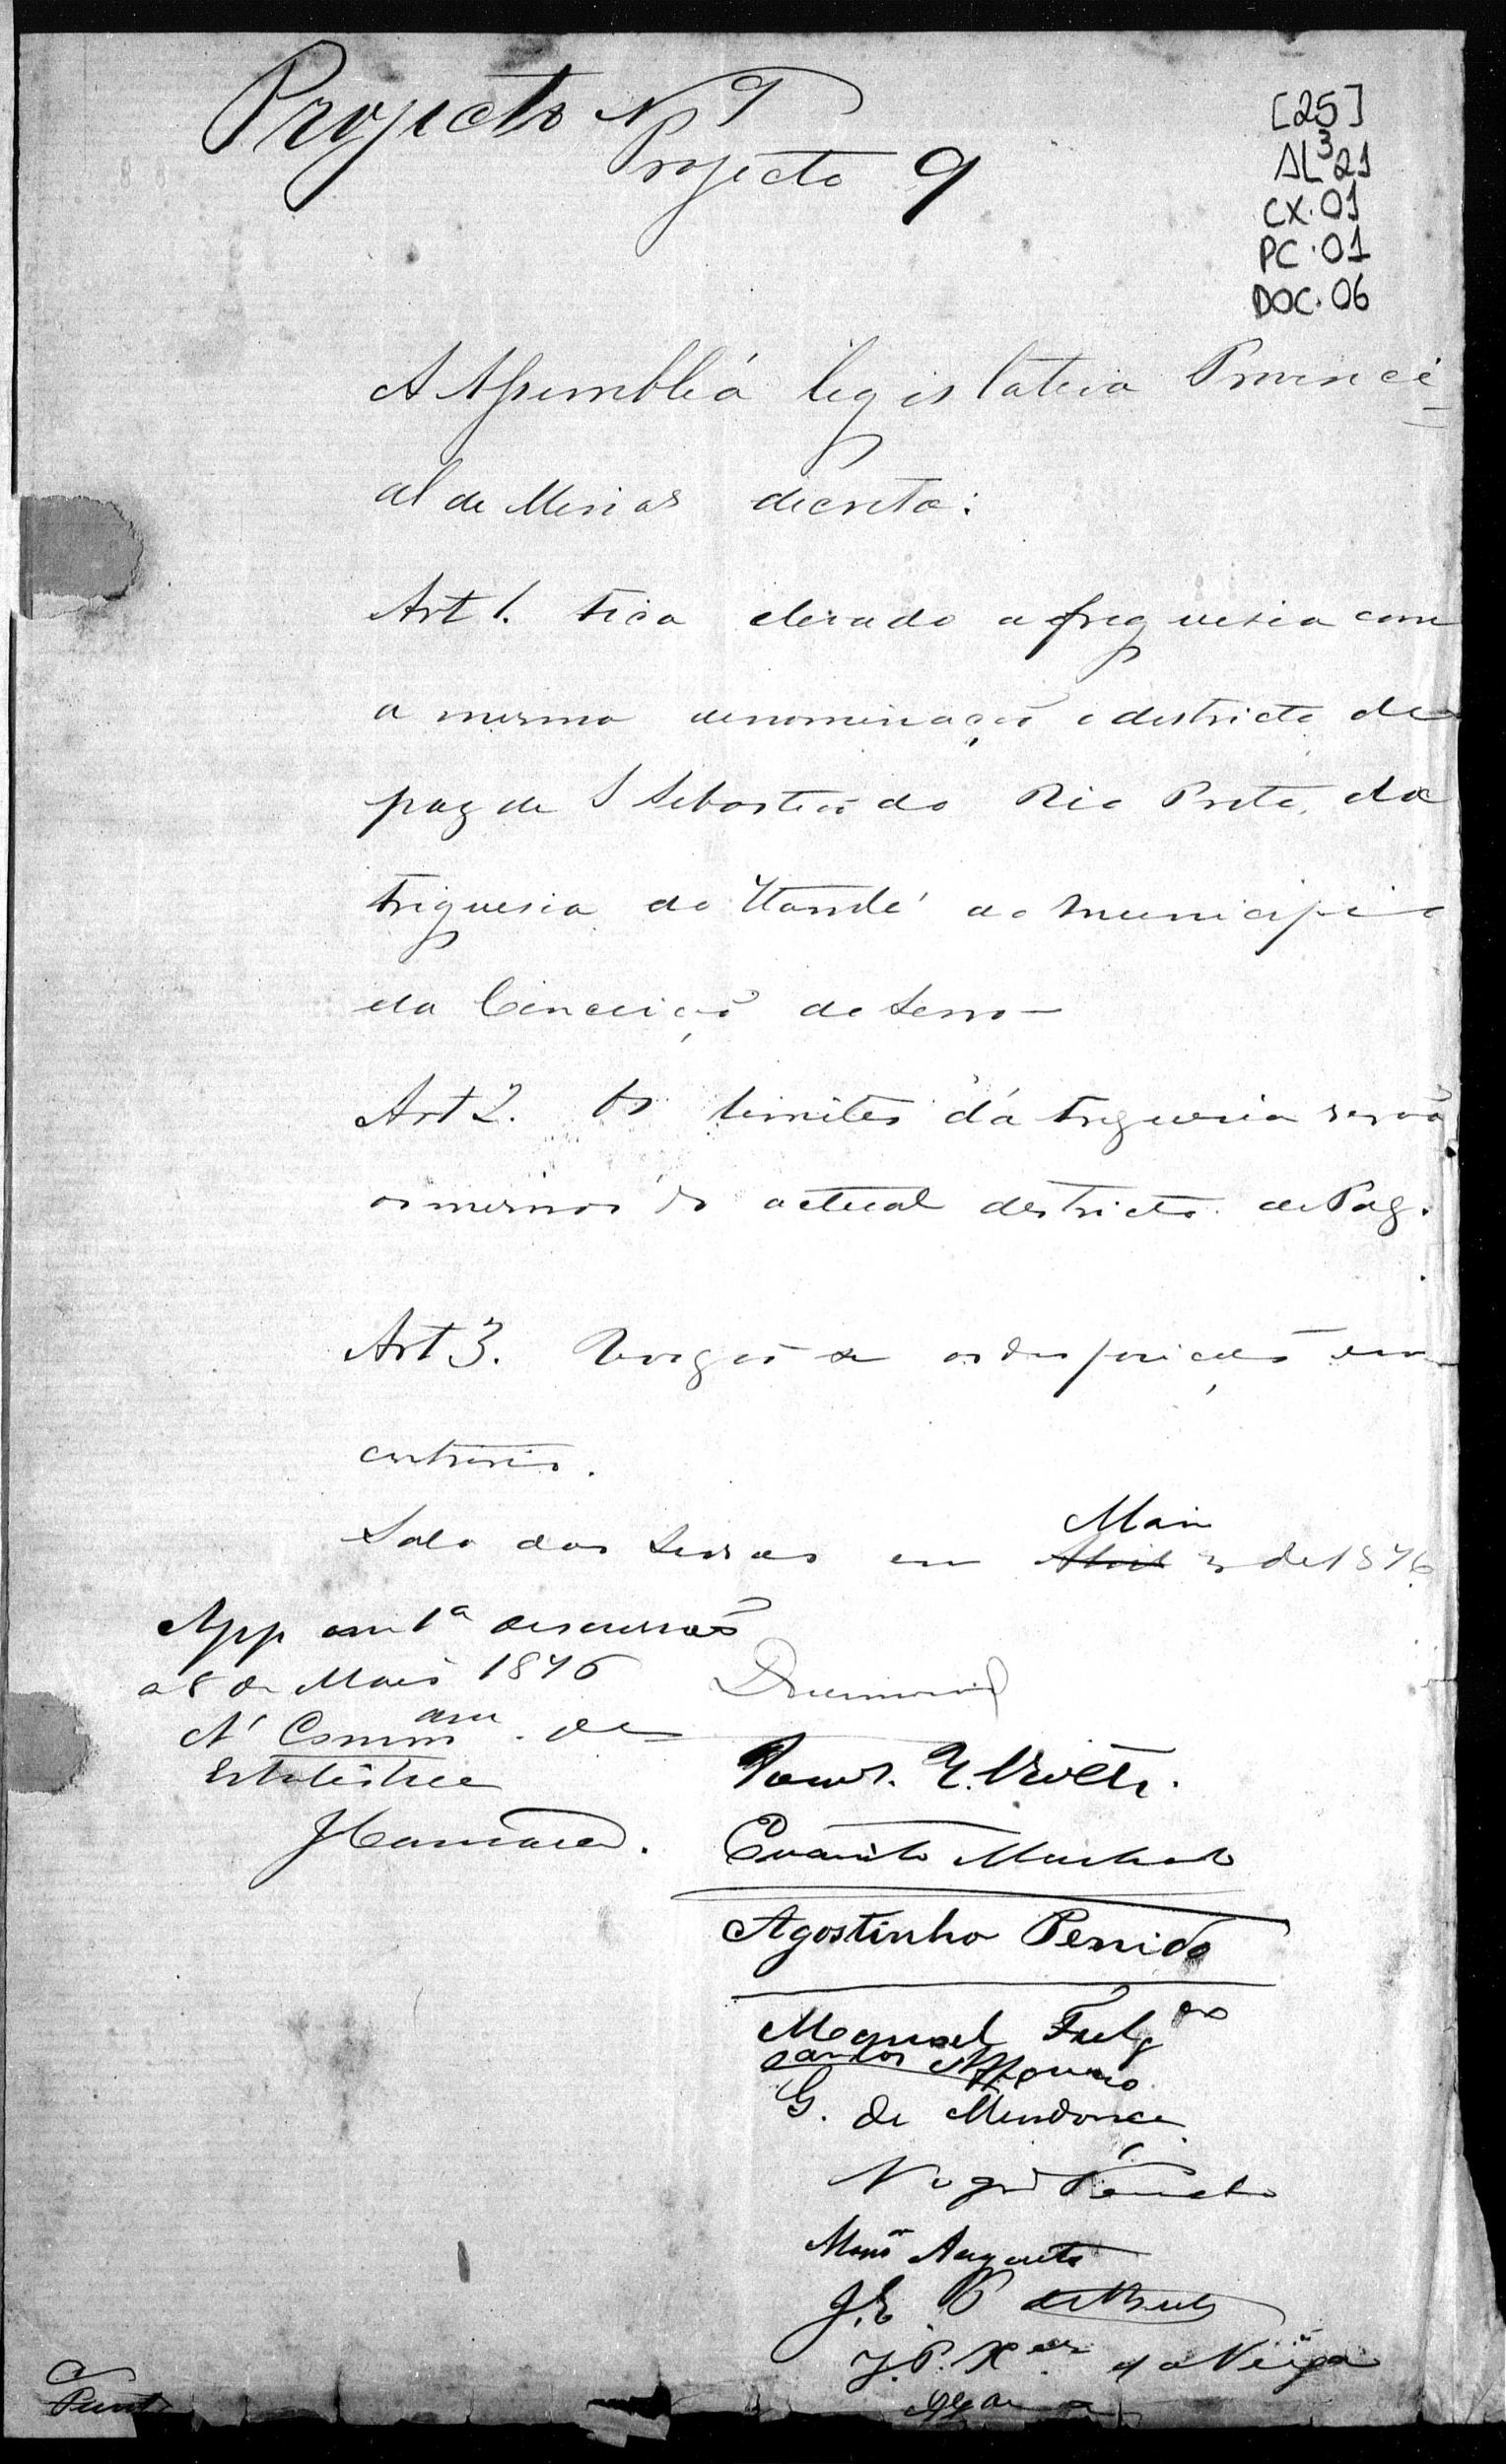 Projecto N 9
Projecto 9
[25]
AL³ 21
CX.01
PC.01
DOC.06
A Assembléa legislativa Provinci
al de Minas decreta:
Art 1. Fica elevado a freguesia com
a mesma denominação o districto de
paz de S Sebastião do Rio Preto, da
freguesia do Itambé do Municipio
da Conceição do Serro—
Art 2. Os limites da freguesia serão
os mesmos do actual districto de Paz.
Art 3. Revogão se as disposições em
contrario.
Sala das Sessoes em Abril Maio 3 de 1876
App em 1ª discussão
a 8 de Maio 1876
A' Commam. de
Estatistica
JCamara.
Drumond
Evaristo Machado
Agostinho Penido
Manoel Fulgcio
Carlos Affonso
G. de Mendonca
Augusto
J.P. Xer da Veiga